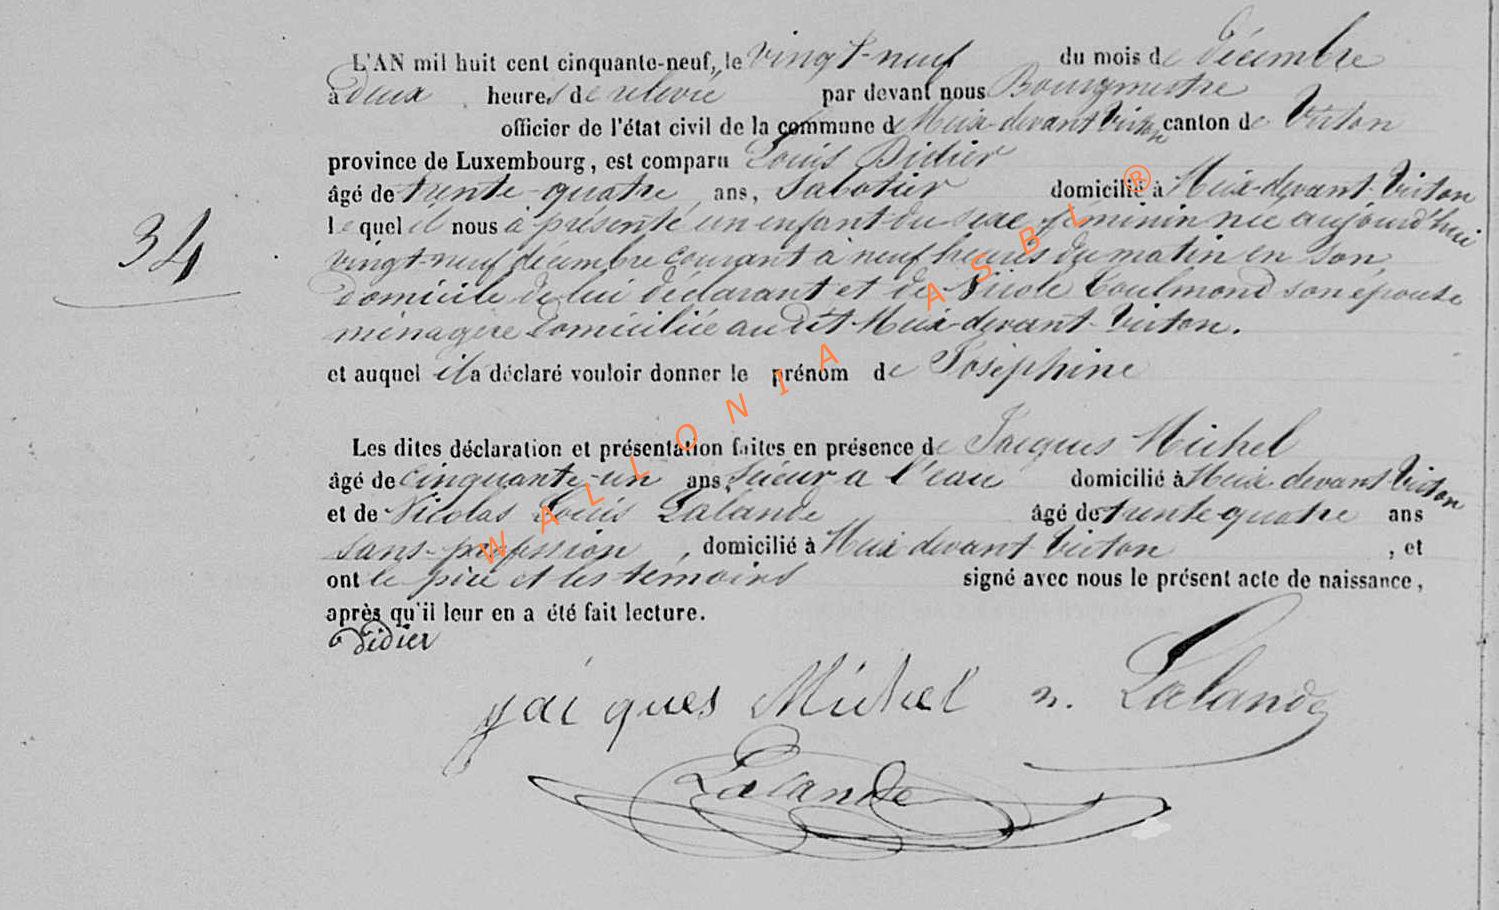 L'AN mil huit cent cinquante-neuf, le vingt-neuf du mois de Décembre
à deux heures de relevée par devant nous Bourgmestre
officier de l'état civil de la commune de Meix-devant Virton canton de Virton
province de Luxembourg, est comparu Louis Didier
âgé de trente-quatre ans, Sabotier domicilié à Meix-devant-Virton
34
le quel il nous a présenté un enfant du sexe féminin née aujourd'hui
vingt-neuf décembre courant à neuf heures du matin en son
domicile de lui déclarant et de Nicole Goulmond son épouse
ménagère domiciliée au dit Meix-devant-Virton.
et auquel il a déclaré vouloir donner le prénom de Joséphine
Les dites déclaration et présentation faites en présence de Jacques Michel
âgé de cinquante-un ans, Scieur a l'eau domicilié à Meix-devant-Virton
et de Nicolas Louis Lalande âgé de trente quatre ans
sans-profession, domicilié à Meix devant Virton, et
ont le père et les témoins signé avec nous le présent acte de naissance,
après qu'il leur en a été fait lecture.
Didier
jaiques Michel n. Lalande
Lalande
WALLONIA ASBL ®